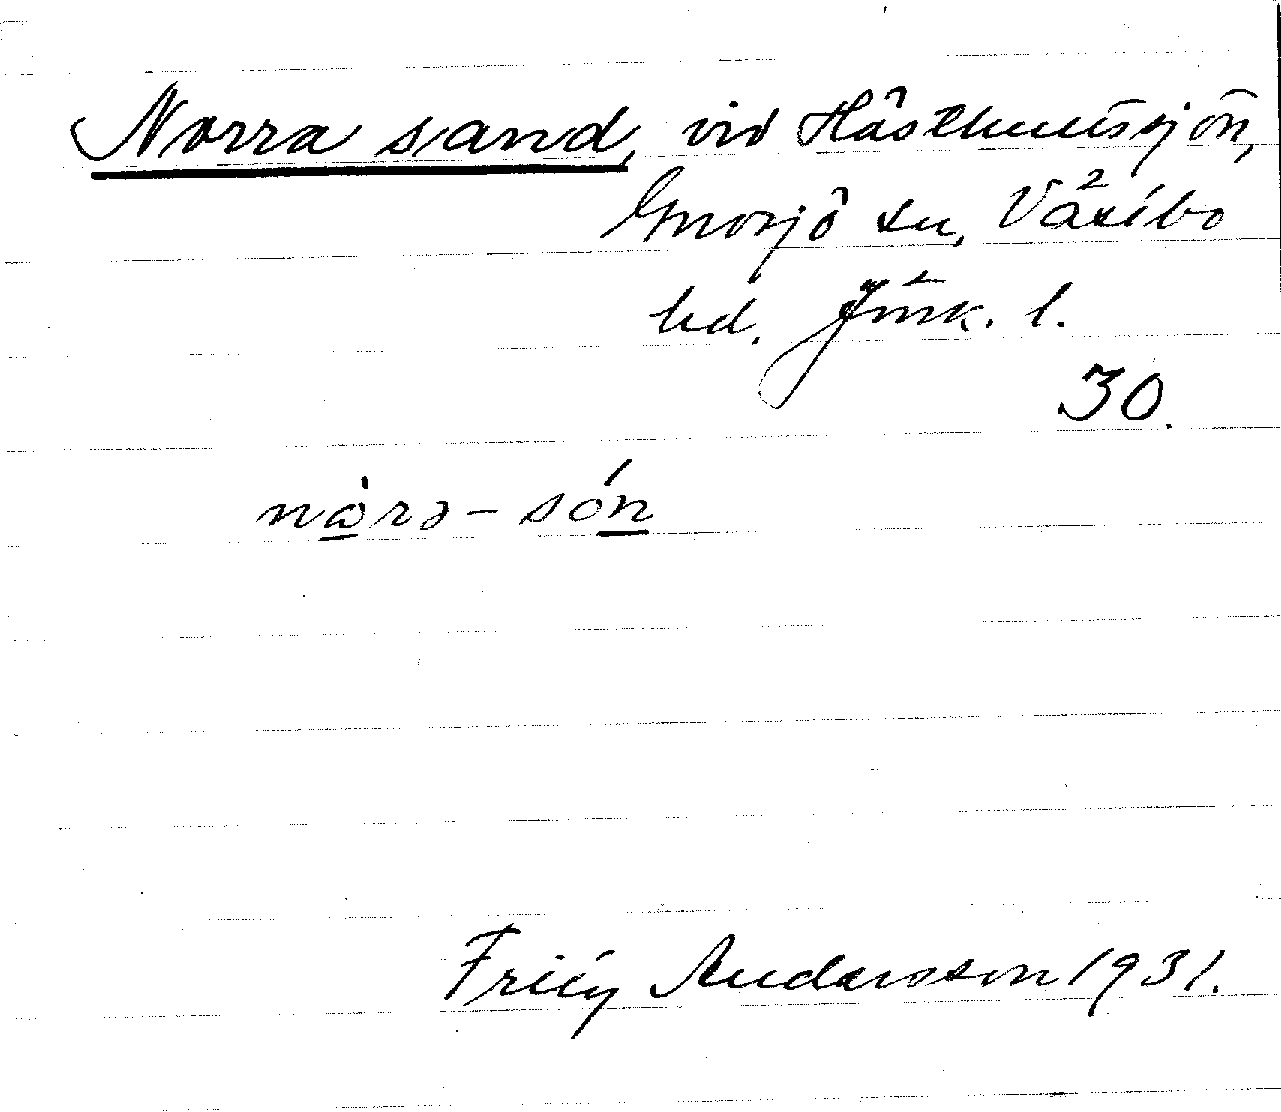 Norra sand, vid Hästhultssjön,
Gnosjö sn, Västbo
hd. Jönk. l.
30.
nòrə-són
Frity Andersson 1931.